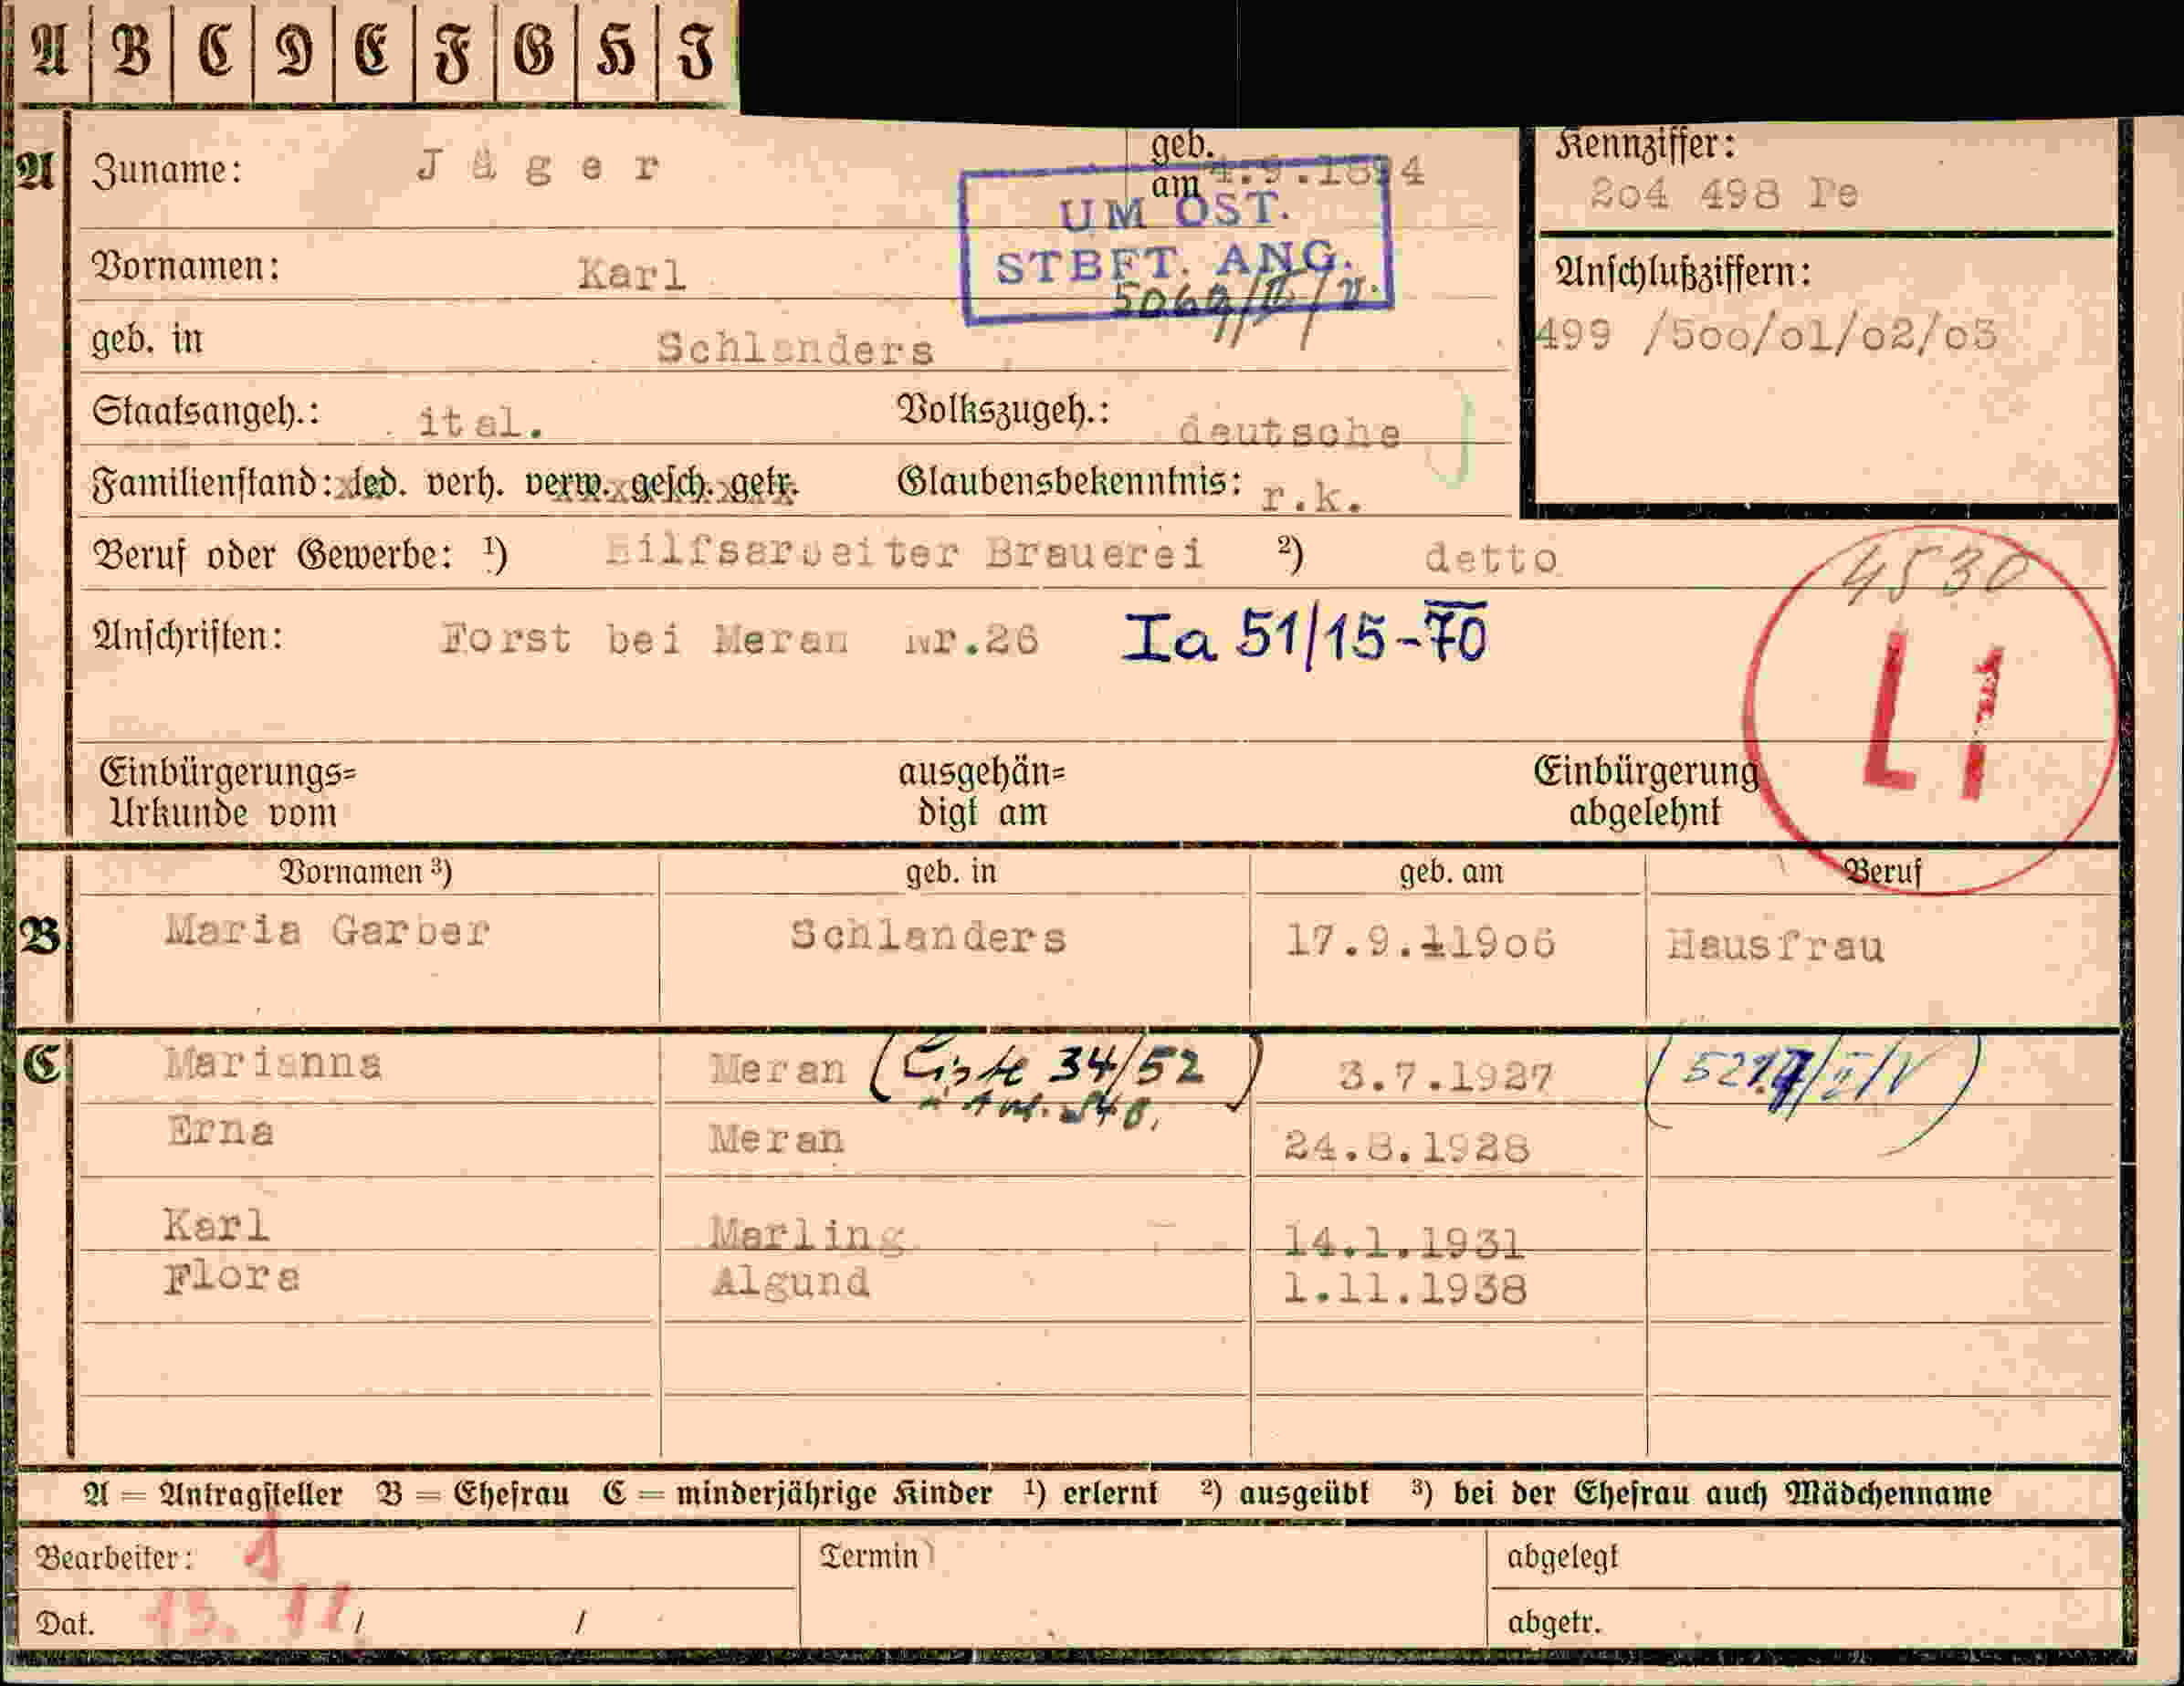 A B C D E F G H I
A Zuname: Jäger geb. am 4.9.1894
Kennziffer:
2o4 498 Pe
UM OST.
STBFT. ANG.
Vornamen: Karl
Anschlußziffern:
499 /5oo/o1/o2/o3
geb. in Schlanders
Staatsangeh.: ital. Volkszugeh.: deutsche
Familienstand: led. verh. verw. gesch. getr. Glaubensbekenntnis: r.k.
Beruf oder Gewerbe: ¹) Hilfsarbeiter Brauerei ²) detto
4530
L 1
Anschriften: Forst bei Meran Nr.26 Ia 51/15-70
Einbürgerungs= ausgehän= Einbürgerung
Urkunde vom digt am abgelehnt
Vornamen ³) geb. in geb. am Beruf
B Maria Garber Schlanders 17.9.11906 Hausfrau
C Marianna Meran (Liste 34/52) 3.7.1927
Erna Meran 24.8.1928
Karl Marling 14.1.1931
Flora Algund 1.11.1938
A = Antragsteller B = Ehefrau C = minderjährige Kinder ¹) erlernt ²) ausgeübt ³) bei der Ehefrau auch Mädchenname
Bearbeiter: 1 Termin abgelegt
Dat. 13. 11 / / abgetr.